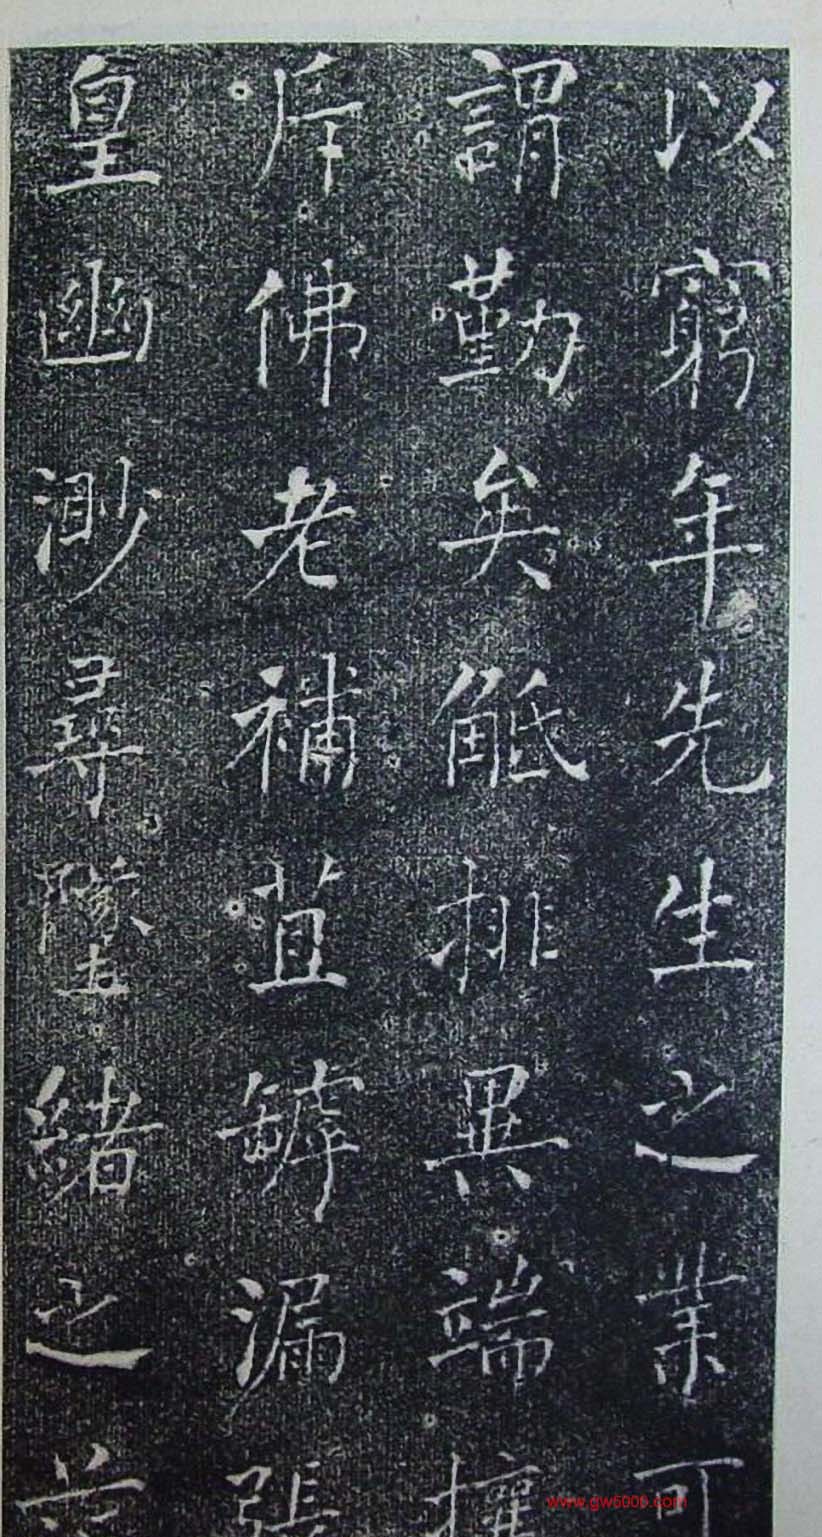 以窮年先生之業可
謂勤矣觝排異端攘
斥佛老補苴罅漏張
皇幽渺尋墜緒之茫
www.gw6000.com